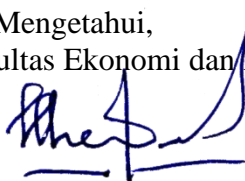 Mengetahui,
ultas Ekonomi dan